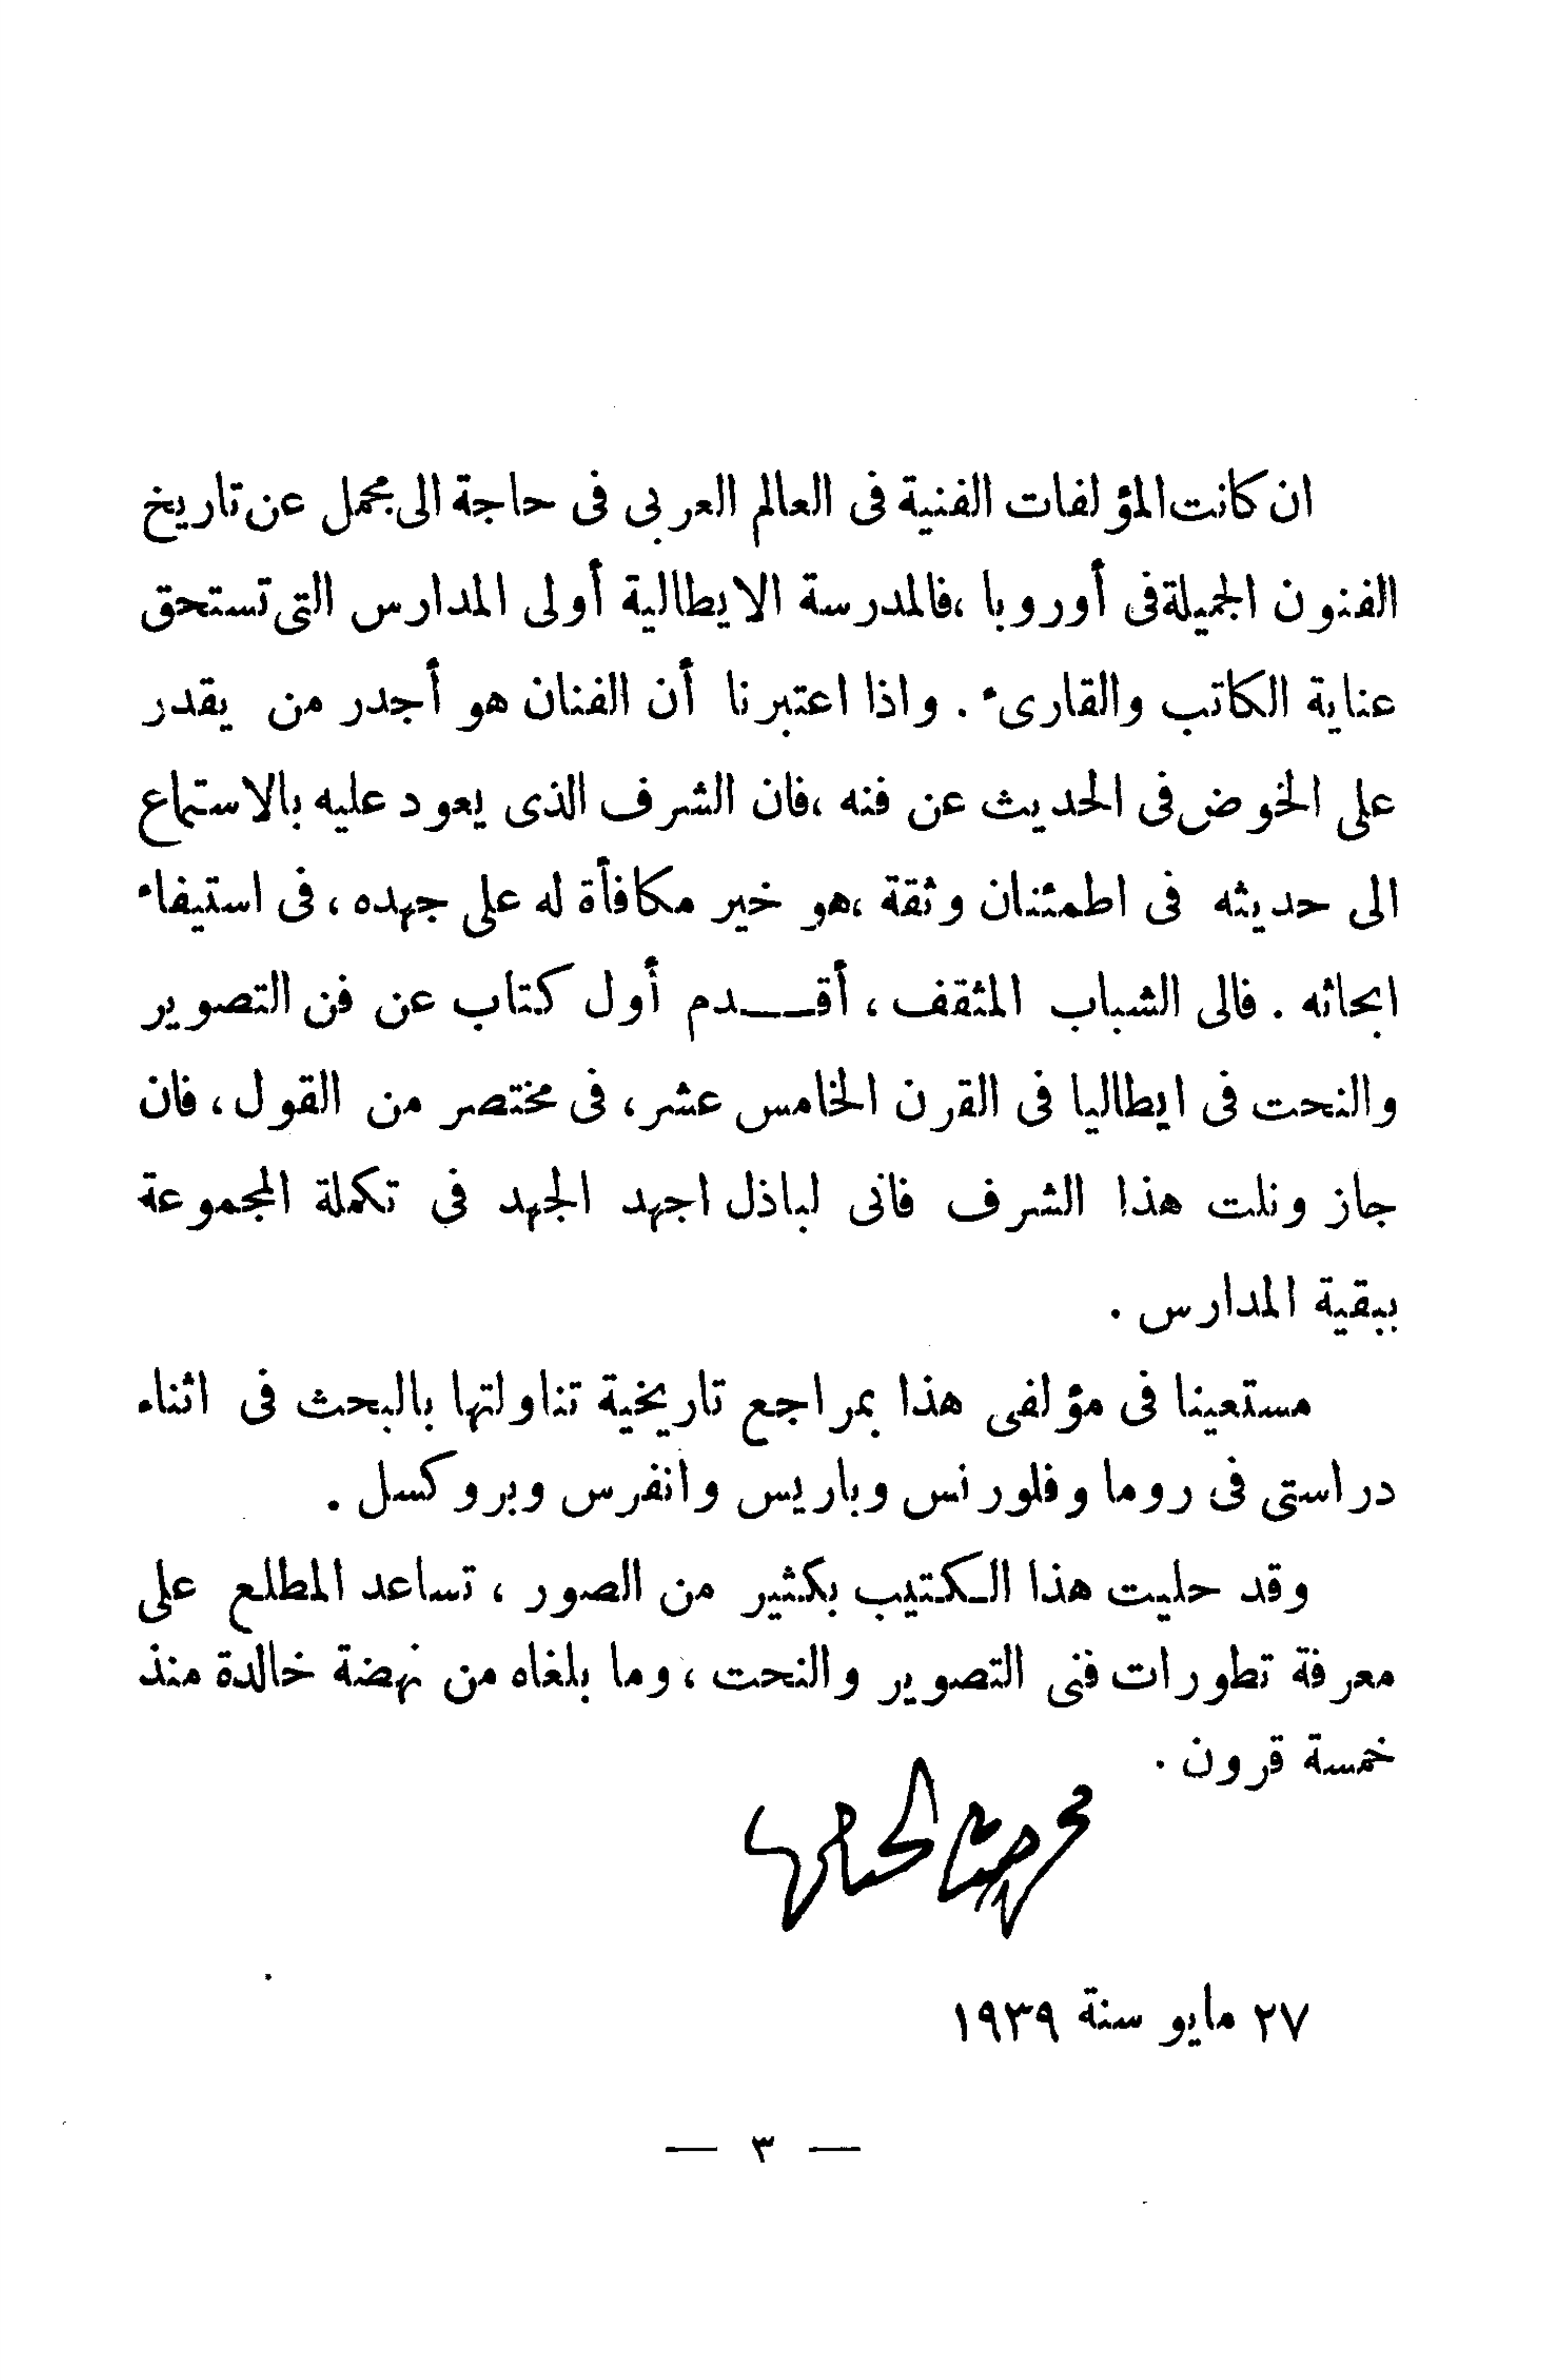 ان كانت المؤلفات الفنية فى العالم العربى فى حاجة الى مجمل عن تاريخ
الفنون الجميلة فى أوروبا ، فالمدرسة الايطالية أولى المدارس التى تستحق
عناية الكاتب والقارىء . واذا اعتبرنا أن الفنان هو أجدر من يقدر
على الخوض فى الحديث عن فنه ، فان الشرف الذى يعود عليه بالاستماع
الى حديثه فى اطمئنان وثقة ، هو خير مكافأة له على جهده ، فى استيفاء
ابحاثه . فالى الشباب المثقف ، أقــدم أول كتاب عن فن التصوير
والنحت فى ايطاليا فى القرن الخامس عشر ، فى مختصر من القول ، فان
جاز ونلت هذا الشرف فانى لباذل اجهد الجهد فى تكملة المجموعة
ببقية المدارس .
مستعينا فى مؤلفى هذا بمراجع تاريخية تناولتها بالبحث فى اثناء
دراستى فى روما وفلورنس وباريس وانفرس وبروكسل .
وقد حليت هذا الـكتيب بكثير من الصور ، تساعد المطلع على
معرفة تطورات فنى التصوير والنحت ، وما بلغاه من نهضة خالدة منذ
خمسة قرون .
٢٧ مايو سنة ١٩٣٩
— ٣ —